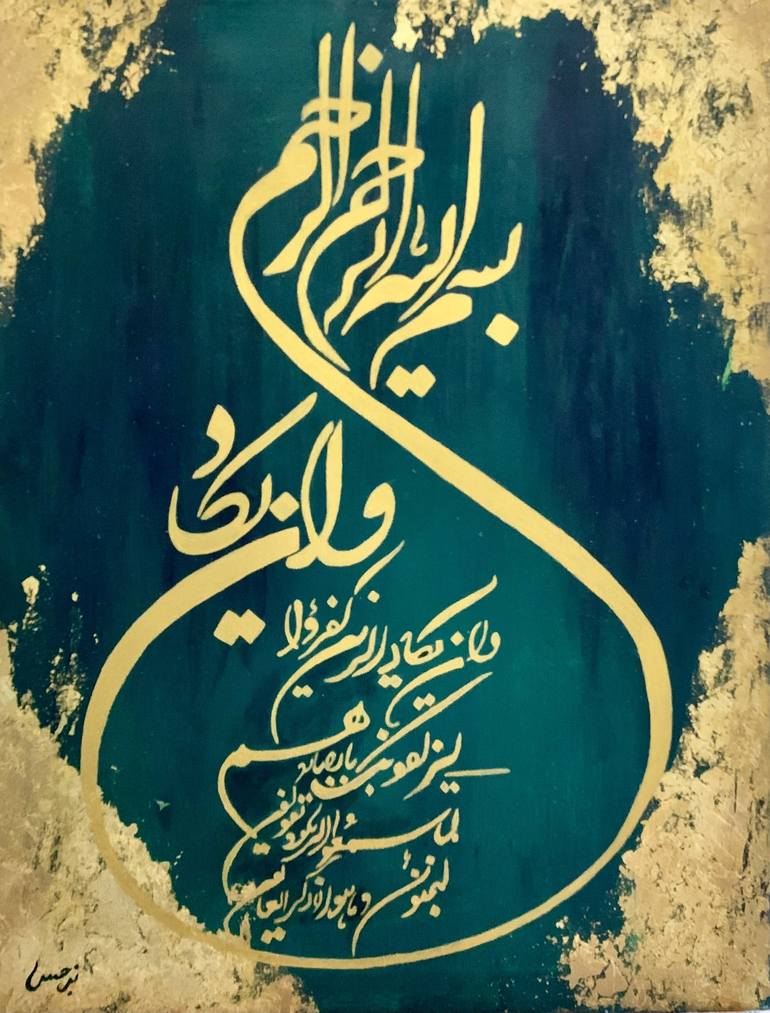 بسم الله الرحمن الرحیم
وان یکاد
وان یکاد الذین کفروا
لیزلقونک بابصارهم
لما سمعوا الذکر و یقولون
لمجنون وما هو الا ذکر للعالمین